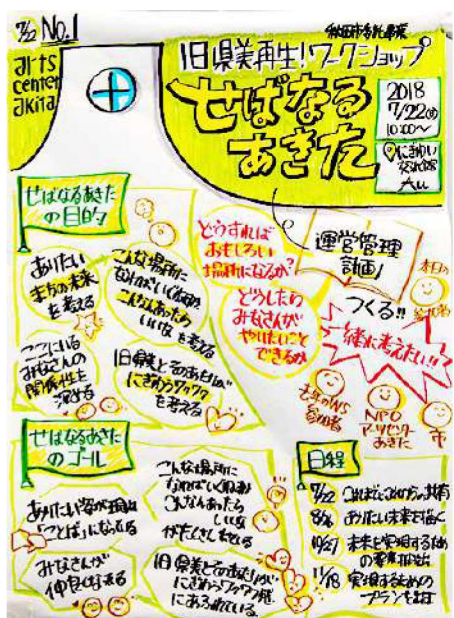 7/22 No.1
秋田市委託事業
arts
center
akita
旧県美再生!ワークショップ
せばなる
あきた
2018
7/22(日)
10:00〜
にぎわい
交流館
AU
せばなるあきた
の目的
ありたい
まちの未来
を考える
こんな場所に
なればいいな
こんなんあったら
いいな を考える
ここにいる
みなさんの
関係性を
深める
旧県美とそのあたりが
にぎわうワクワク
を考える
どうすれば
おもしろい
場所になるか?
どうしたら
みなさんが
やりたいこと
できるか
運営管理
計画
つくる!!
一緒に考えたい!!
本日の
参加者
去年のWS
参加者
NPO
アーツセンター
あきた
市
せばなるあきた
のゴール
ありたい姿が
「ことば」になっている
こんな場所に
なればいい
こんなんあったら
いいな
がたくさんでている
みなさんが
仲良くなる
旧県美とそのあたりが
にぎわうワクワク感
にあふれている
日程
7/22 これまでとこれからの共有
8/26 ありたい未来を描く
10/27 未来を実現するため
の要素抽出
11/18 実現するための
プランを話す